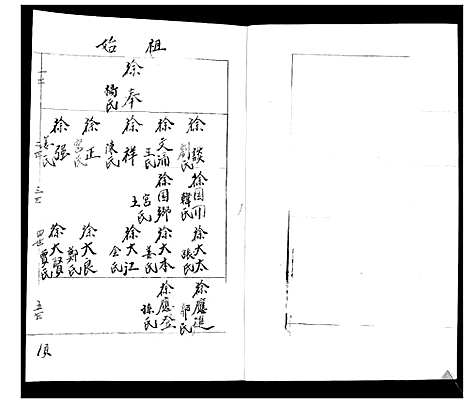 始祖
一世
徐奉
楊氏
二世
徐談
劉氏
徐文浦
王氏
徐祥
陳氏
徐正
宮氏
徐强
姜氏
三世
徐国川
韓氏
徐国鄉
宮氏
王
四世
徐大太
張氏
徐大本
姜氏
徐大江
金氏
徐大良
鄭氏
徐大賢
賈氏
五世
徐應進
郭氏
徐應登
孫氏
1页